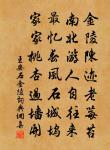 金陵陳迹老莓苔
南北游人自往來
最憶春風石城塢
家家桃杏過墻開
王安石金陵詩與調本